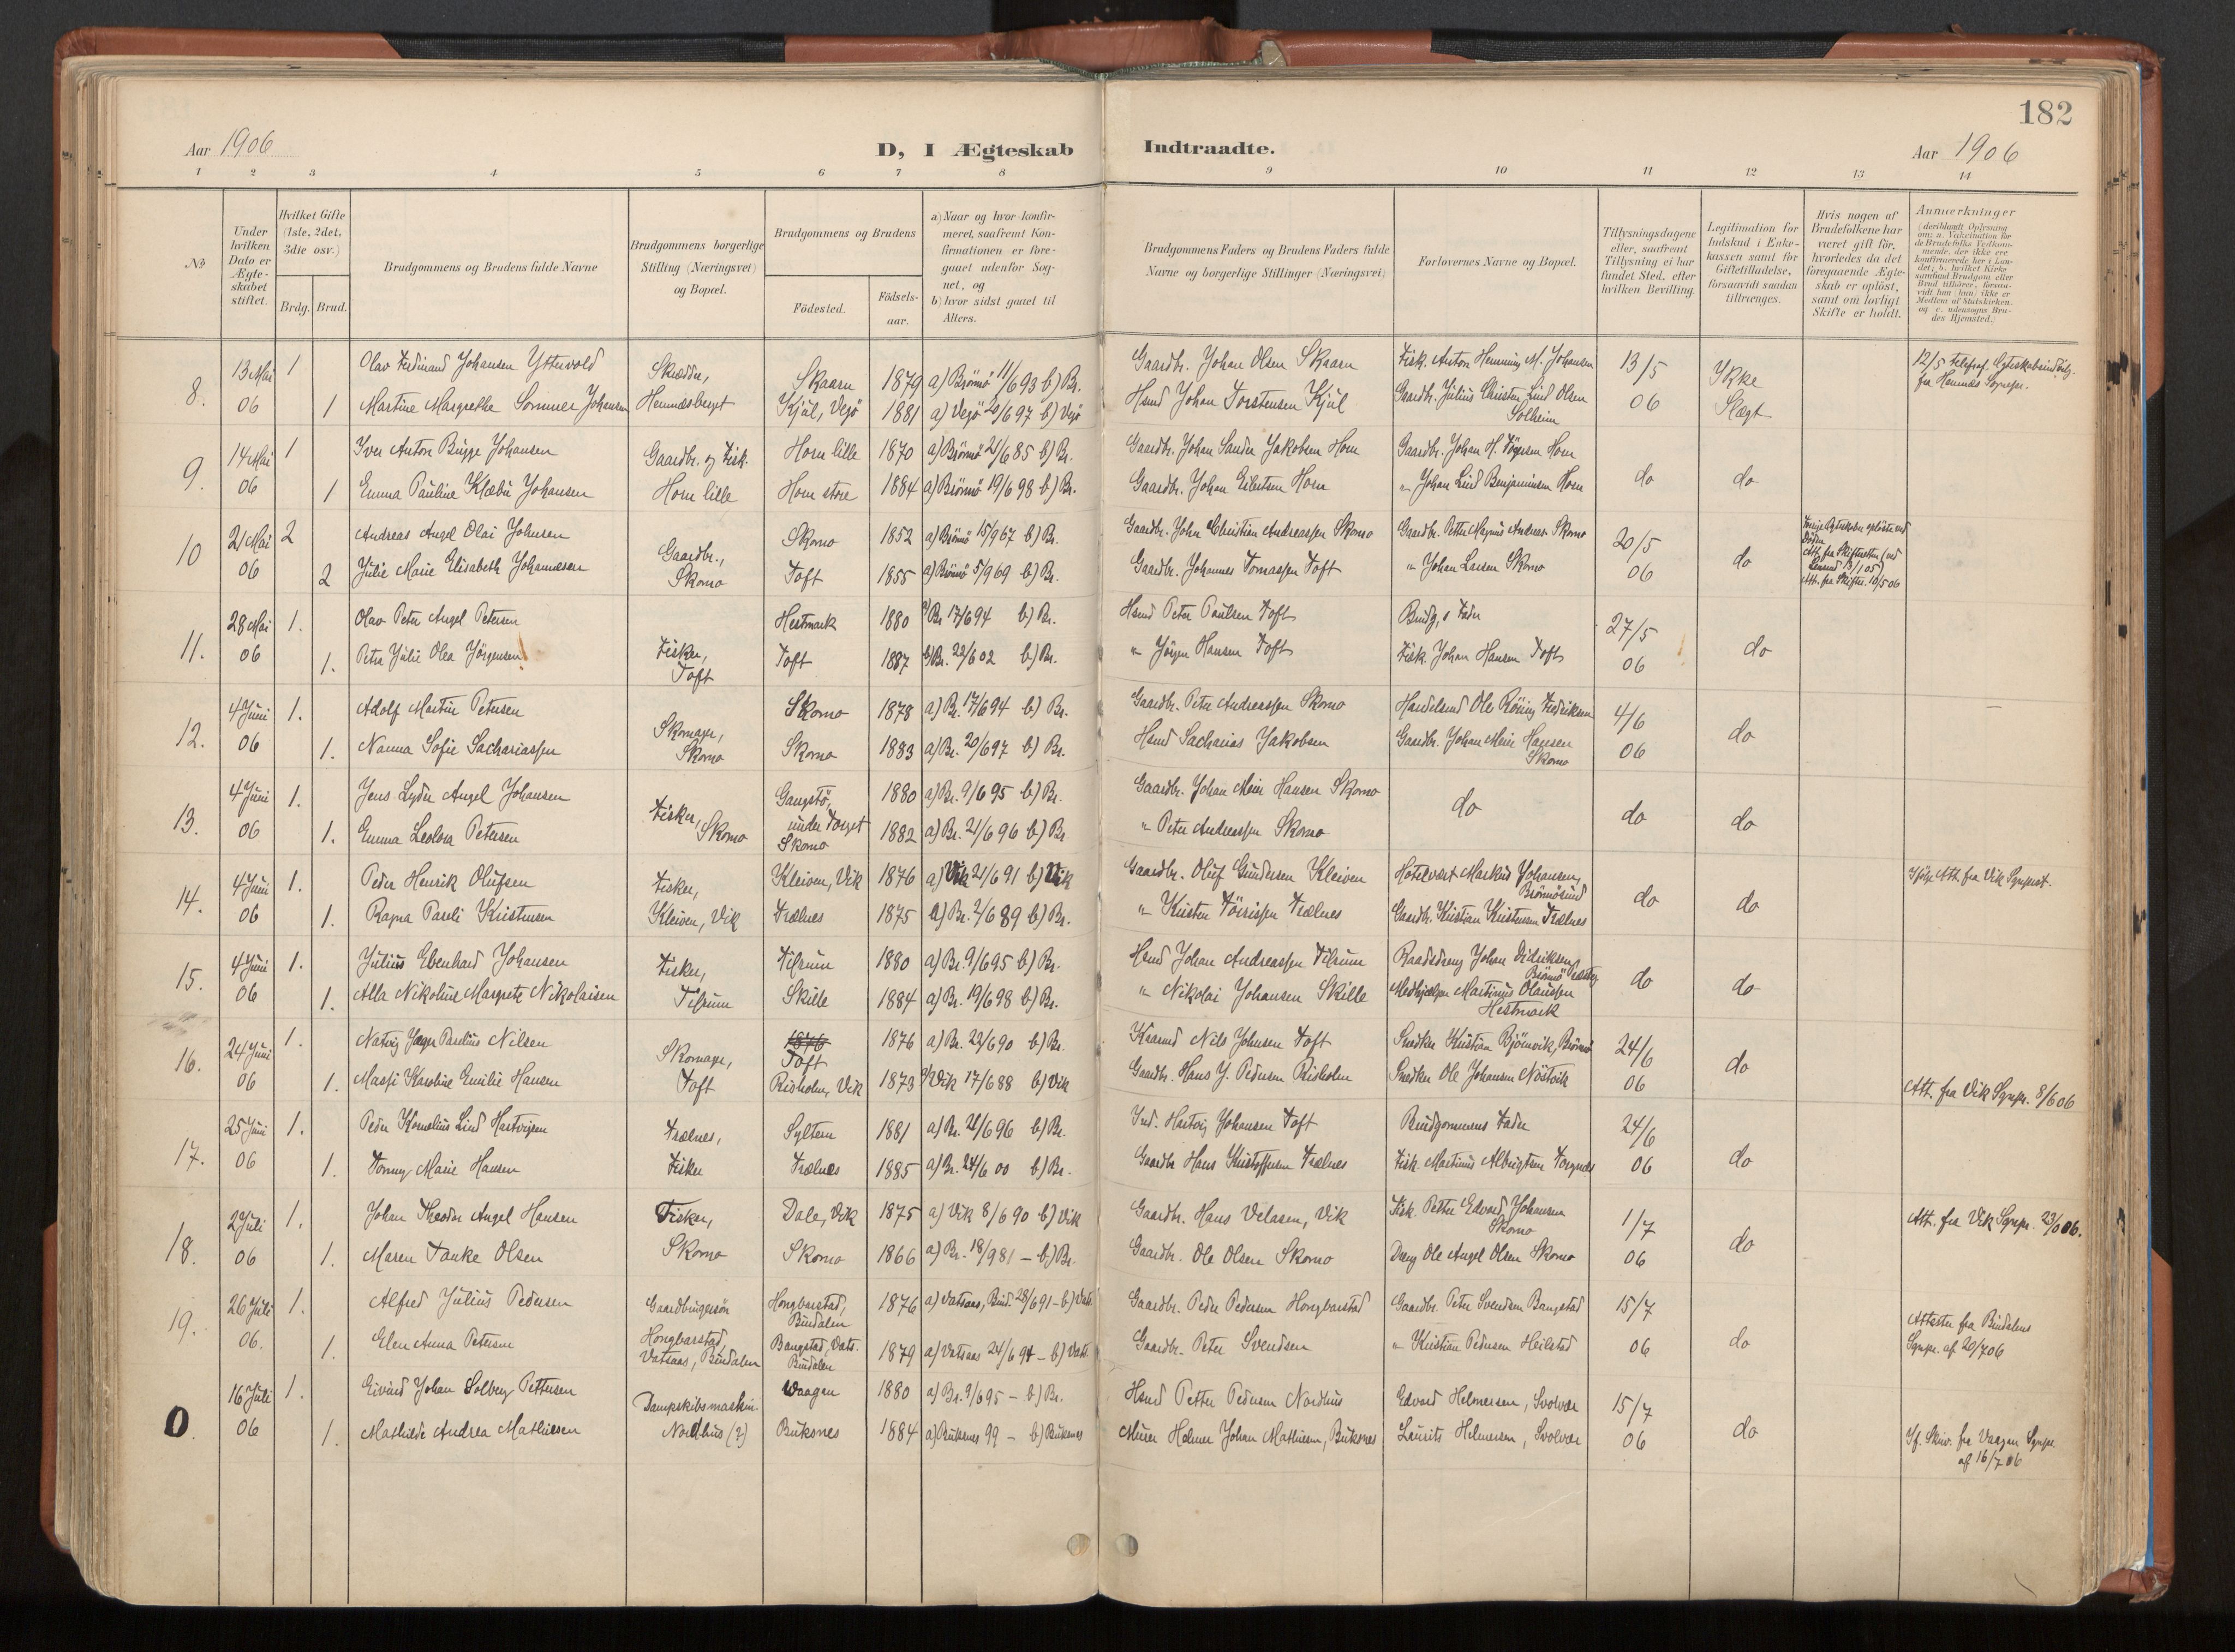 182
Aar 1906
D, I Ægteskab Indtraadte.
Aar 1906
1 2 3 4 5 6 7 8 9 10 11 12 13 14
No
Under hvilken Dato er Ægteskabet stiftet.
Hvilket Gifte (1ste, 2det, 3die osv.)
Brdg. Brud.
Brudgommens og Brudens fulde Navne
Brudgommens borgerlige Stilling (Næringsvei) og Bopæl.
Brudgommens og Brudens
Födested.
Födsels-aar.
a) Naar og hvor konfirmeret, saafremt Konfirmationen er foregaaet udenfor Sognet, og
b) hvor sidst gaaet til Alters.
Brudgommens Faders og Brudens Faders fulde Navne og borgerlige Stillinger (Næringsvei)
Forlovernes Navne og Bopæl.
Tillysningsdagene eller, saafremt Tillysning ei har fundet Sted, efter hvilken Bevilling.
Legitimation for Indskud i Enkekassen samt for Giftetilladelse, forsaavidt saadan tiltrænges.
Hvis nogen af Brudefolkene har været gift för, hvorledes da det foregaaende Ægteskab er oplöst, samt om lovligt Skifte er holdt.
Anmerkninger (deriblandt Oplysning om: a. Vakcination for de Brudefolks Vedkommende, der ikke ere konfirmerede her i Landet; b. hvilket Kirkesamfund Brudgom eller Brud tilhörer, forsaavidt han (hun) ikke er Medlem af Statskirken, og c. udensogns Brudes Hjemsted.)
8. 13 Mai 06 1 Olav Ferdinand Johansen Yttervold Skrædder, Skaarn 1879 a) Brönnö 11/6 93 b) Br. Gaardbr. Johan Olsen Skaarn Fisk. Anton Henning M. Johansen 13/5 06 Ykke Slægt
1 Martine Margrethe Sommer Johansen Hemnesberget Kjul, Vegö 1881 a) Vegö 20/6 97 b) Vegö Hsmd Johan Torstensen Kjul Gaardbr. Julius Christen Lind Olsen Solheim
9. 14 Mai 06 1 Iver Anton Bugge Johansen Gaardbr. og Fisk. Horn lille 1870 a) Brönnö 21/6 85 b) Br. Gaardbr. Johan Sander Jakobsen Horn Gaardbr. Johan H. Högersen Horn do do
1 Emma Pauline Klæbu Johansen Horn lille Horn store 1884 a) Brönnö 19/6 98 b) Br. Gaardbr. Johan Eilertsen Horn " Johan Lind Benjaminsen Horn
10 21 Mai 06 2 Andreas Angel Olai Johnsen Gaardbr., Skomo 1852 a) Brönnö 15/9 67 b) Br. Gaardbr. John Christian Andreassen Skomo Gaardbr. Petter Magnus Andreas. Skomo 20/5 06 do
2 Julie Marie Elisabeth Johannesen Skomo Toft 1855 a) Brönnö 5/9 69 b) Br. Gaardbr. Johannes Tomassen Toft " Johan Larsen Skomo
Att. fra Skifter. 10/5 06
11. 28 Mai 06 1. Olav Peter Angel Petersen Fisker, Hestmark 1880 a) Br 17/6 94 b) Br. Hsmd Peter Paulsen Toft Brudg.s Fader 27/5 06 do
1. Petra Julie Olea Jörgensen Toft Toft 1887 a) Br. 22/6 02 b) Br. " Jörgen Hansen Toft Fisk. Johan Hansen Toft
12. 4 Juni 06 1. Adolf Martin Petersen Skomager, Skomo 1878 a) Br. 17/6 94 b) Br. Gaardbr. Peter Andreassen Skomo Handelsmd Ole Röring Fredriksen 4/6 06 do
1. Nanna Sofie Sachariassen Skomo Skomo 1883 a) Br. 20/6 97 b) Br. Hsmd Sacharias Jakobsen Gaardbr. Johan Meier Hansen Skomo
13. 4 Juni 06 1. Jens Lyder Angel Johansen Fisker, Skomo Gangstö, under Torget 1880 a) Br. 9/6 95 b) Br. Gaardbr. Johan Meier Hansen Skomo do do do
1. Emma Leolova Petersen Skomo 1882 a) Br. 21/6 96 b) Br " Peter Andreassen Skomo
14. 4 Juni 06 1. Peder Henrik Olufsen Fisker, Kleiven, Vik 1876 a) Vik 21/6 91 b) Vik Gaardbr. Oluf Gundersen Kleiven Hotelvært Markus Johansen, Brönnösund do do Ifölge Att. fra Vik Sgnpræst.
1. Ragna Pauli Kristensen Kleiven, Vik Trælnes 1875 a) Br. 2/6 89 b) Br. " Kristen Töirissen Trælnes Gaardbr. Kristian Kristensen Trælnes
15. 4 Juni 06 1. Julius Ebenhard Johansen Fisker, Tilrum 1880 a) Br. 9/6 95 b) Br. Hsmd Johan Andreassen Tilrum Raadsdreng Johan Didriksen, Brönnö Præsteg. do do
1. Alla Nikoline Margrete Nikolaisen Tilrum Skille 1884 a) Br. 19/6 98 b) Br. " Nikolai Johansen Skille Medhjelper Martinus Olaussen Hestmark
16. 24 Juni 06 1. Natvig Jager Paulius Nilsen Skomager, 1876 Toft 1876 a) Br. 22/6 90 b) Br. Kaarmd Nils Johnsen Toft Snedker Kristian Björnvik, Brönnö 24/6 06 do
1. Massi Karoline Emilie Hansen Toft Risholm, Vik 1873 a) Vik 17/6 88 b) Vik Gaardbr. Hans J. Pedersen Risholm Snedker Ole Johansen Nöstvik Att. fra Vik Sgnpr. 8/6 06
17. 25 Juni 06 1. Peder Kornelius Lind Hartvigsen Trælnes, Syltern 1881 a) Br. 21/6 96 b) Br. Ind. Hartvig Johansen Toft Brudgommens Fader 24/6 06 do
1. Tonny Marie Hansen Fisker Trælnes 1885 a) Br. 24/6 00 b) Br. Gaardbr Hans Kristoffersen Trælnes Fisk. Martinus Albrigtsen Torgnes
18. 2 Juli 06 1. Johan Theodor Angel Hansen Fisker, Dale, Vik 1875 a) Vik 8/6 90 b) Vik Gaardbr. Hans Velasen, Vik Fisk. Petter Edvard Johansen Skomo 1/7 06 do Att. fra Vik Sgnpr. 23/6 06.
1. Maren Tanke Olsen Skomo Skomo 1866 a) Br. 18/9 81 – b) Br. Gaardbr. Ole Olsen Skomo Dreng Ole Angel Olsen Skomo
19. 26 Juli 06. 1. Alfred Julius Pedersen Gaardbrugersön Hongbarstad, Bindalen 1876 a) Vatsaas, Bind. 28/6 91 – b) Vats. Gaardbr. Peder Pedersen Hongbarstad Gaardbr. Peter Svendsen Bangstad 15/7 06 do Attester fra Bindalens Sgnpr. af 20/7 06
1. Elen Anna Petersen Hongbarstad, Vatsaas, Bindalen Bangstad, Vats. Bindalen 1879 a) Vatsaas 24/6 94 – b) Vats. Gaardbr. Peter Svendsen " Kristian Pedersen Heilstad
0. 16 Juli 06 1. Eivind Johan Solberg Pettersen Dampskibsmaskin. Vaagan 1880 a) Br. 9/6 95 – b) Br. Hsmd Petter Pedersen Nordhus Edvard Helmersen, Svolvær 15/7 06 do
1. Mathilde Andrea Mathiesen Nordhus (?) Buksnes 1884 a) Buksnes 99 – b) Buksnes Murer Helmer Johan Mathiesen, Buksnes Laurits Helmersen, Svolvær If. Skriv. fra Vaagan Sgnpr. af 16/7 06